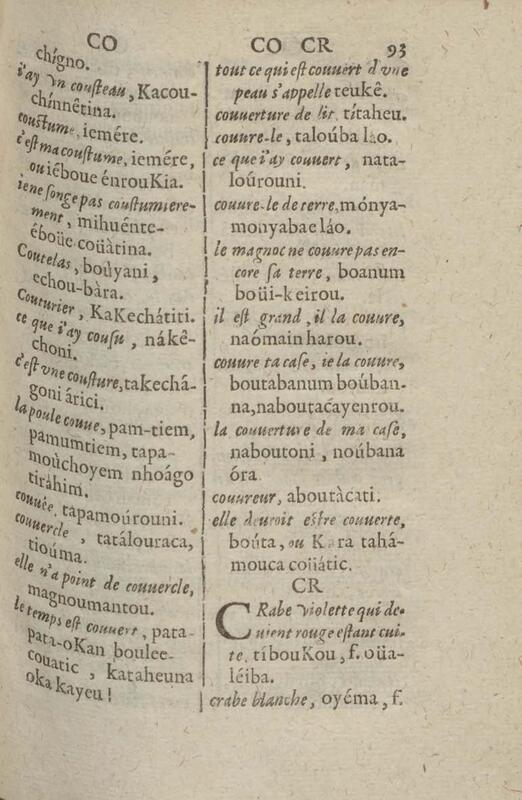 CO
chígno.
i'ay vn cousteau, Kacou-
chínnêtina.
coustume, iemére.
c'est ma coustume, iemére,
ou iéboue énrouKia.
ie ne songe pas coustumiere-
ment, mihuénte-
éboüe coüàtina.
Coutelas, boùyani,
echou-bàra.
Couturier, KaKechátiti.
ce que i'ay cousu, nákê-
choni.
c'est vne cousture, takechá-
goni àrici.
la poule couue, pam-tiem,
pamumtiem, tapa-
moùchoyem nhoágo
tiràhim.
couuée, tapamoúrouni.
couuercle, tatálouraca,
tioúma.
elle n'a point de couuercle,
magnoumantou.
le temps est couuert, pata-
pata-oKan boulee-
couatic, kataheuna
oka kayeu!
CO CR 93
tout ce qui est couuert d'vne
peau s'appelle teukê.
couuerture de lit, títaheu.
couure-le, taloúba láo.
ce que i'ay couuert, nata-
loúrouni.
couure-le de terre, mónya-
monyabae láo.
le magnoc ne couure pas en-
core sa terre, boanum
boüi-keirou.
il est grand, il la couure,
naómain harou.
couure ta case, ie la couure,
boutabanum boúban-
na, naboutacáyenrou.
la couuerture de ma case,
naboutoni, noúbana
óra
couureur, aboutàcati.
elle deuroit estre couuerte,
boúta, ou Kara tahá-
mouca coüátic.
CR
CRabe violette qui de-
uient rouge estant cui-
te, tíbouKou, f. oüa-
léiba.
crabe blanche, oyéma, f.